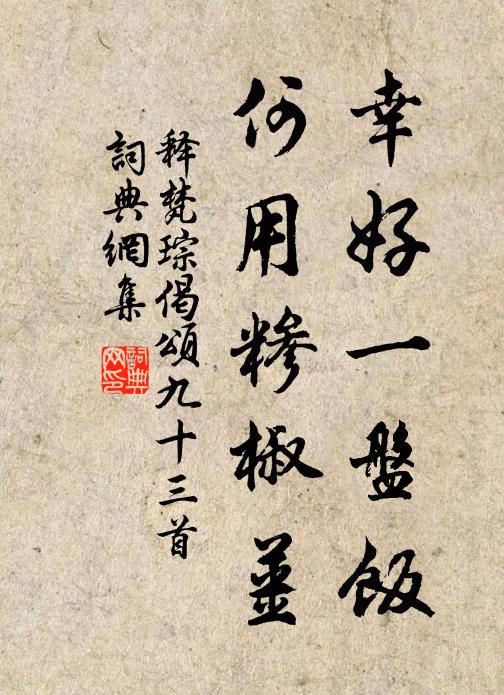 幸好一盤飯
何用糝椒薑
释梵琮偈頌九十三首
詞典網集
詞典网印